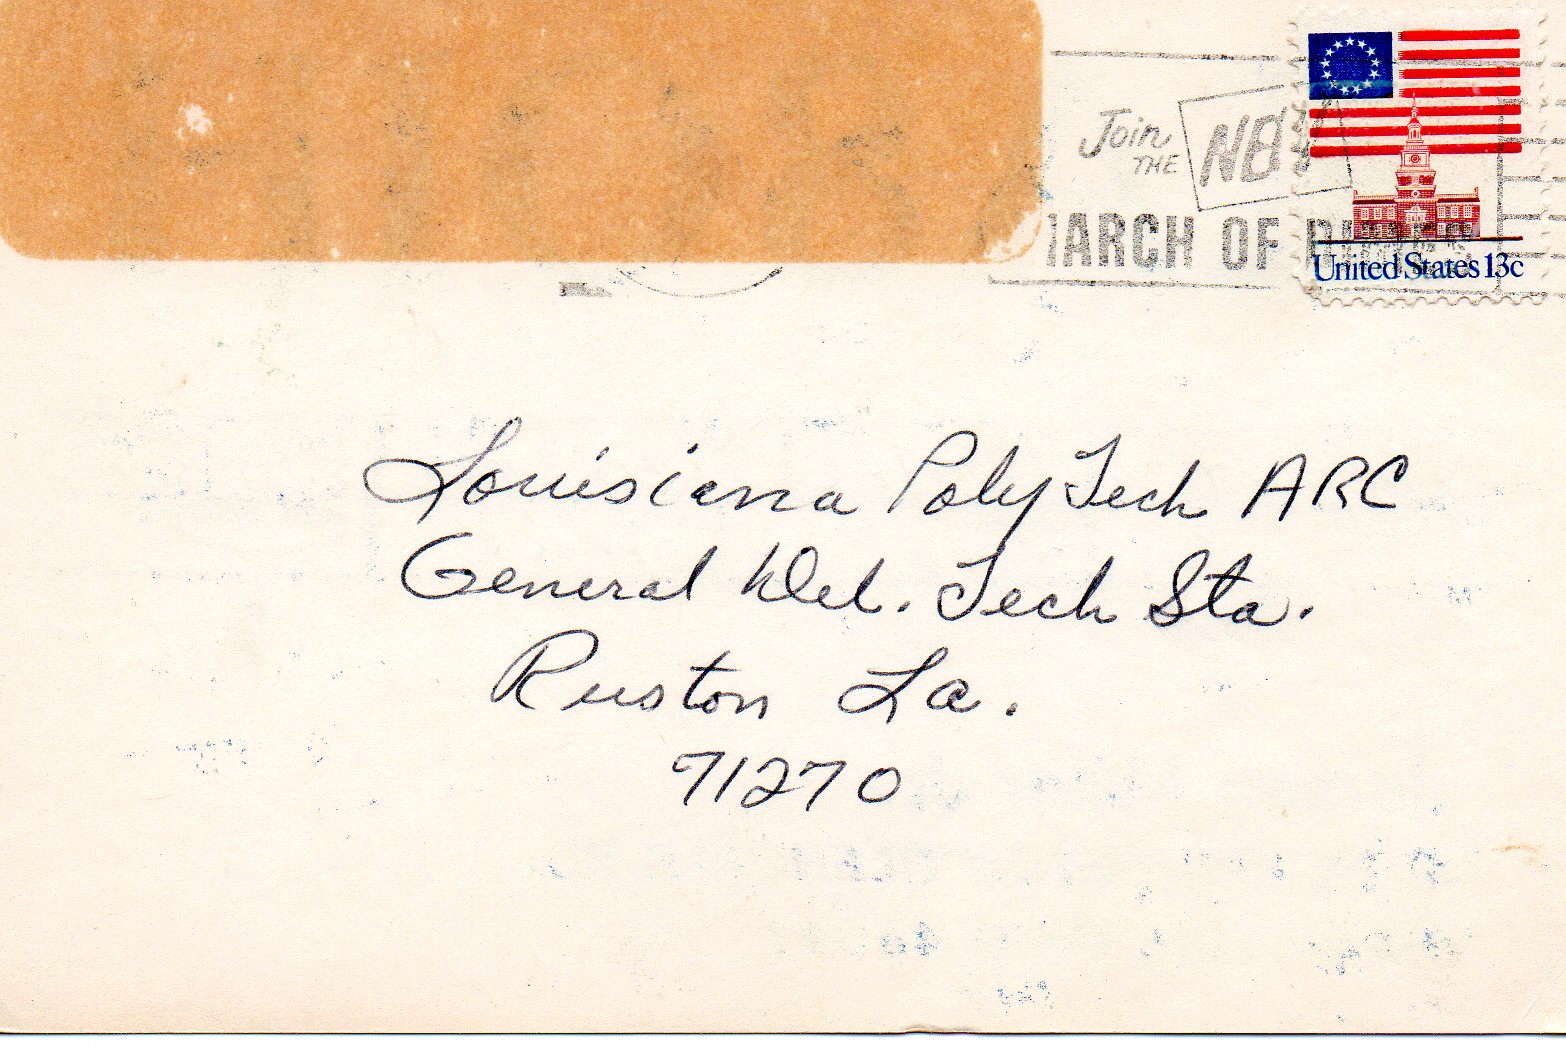 Join
THE NEW
MARCH OF DIMES
United States 13c
Louisiana Poly Tech ARC
General Del. Tech Sta.
Ruston La.
71270